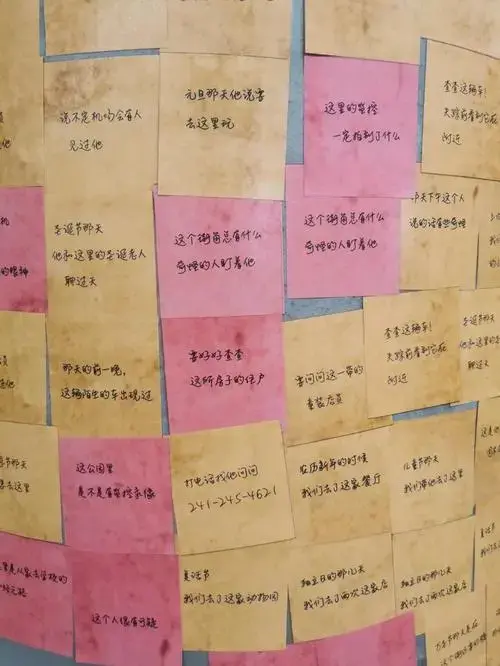 元旦那天他说要
去这里玩
这里的监控
一定拍到了什么
查查这辆车!
失踪前看到它在
附近
说不定机会有人
见过他
机
的眼神
圣诞节那天
他和这里的圣诞老人
聊过天
这个街角总有什么
奇怪的人盯着他
这个街角总有什么
奇怪的人盯着他
天下午这个人
说的话有些奇怪
那天的前一晚，
这辆陌生的车出现过
要好好查查
这所房子的住户
要问问这一带的
童装店员
查查这辆车!
失踪前看到它在
附近
圣诞节那天
他和这里的
聊过天
节那天
去这里
这公园里
是不是有监控录像
打电话找他问问
241-245-4621
农历新年的时候
我们去了这家餐厅
儿童节那天
我们带他去了这里
里是从家去学校的
这个人很有可疑
复活节
我们去了这家动物园
独立日的那几天
我们去了两次这家店
独立日的那几天
我们去了两次这家店